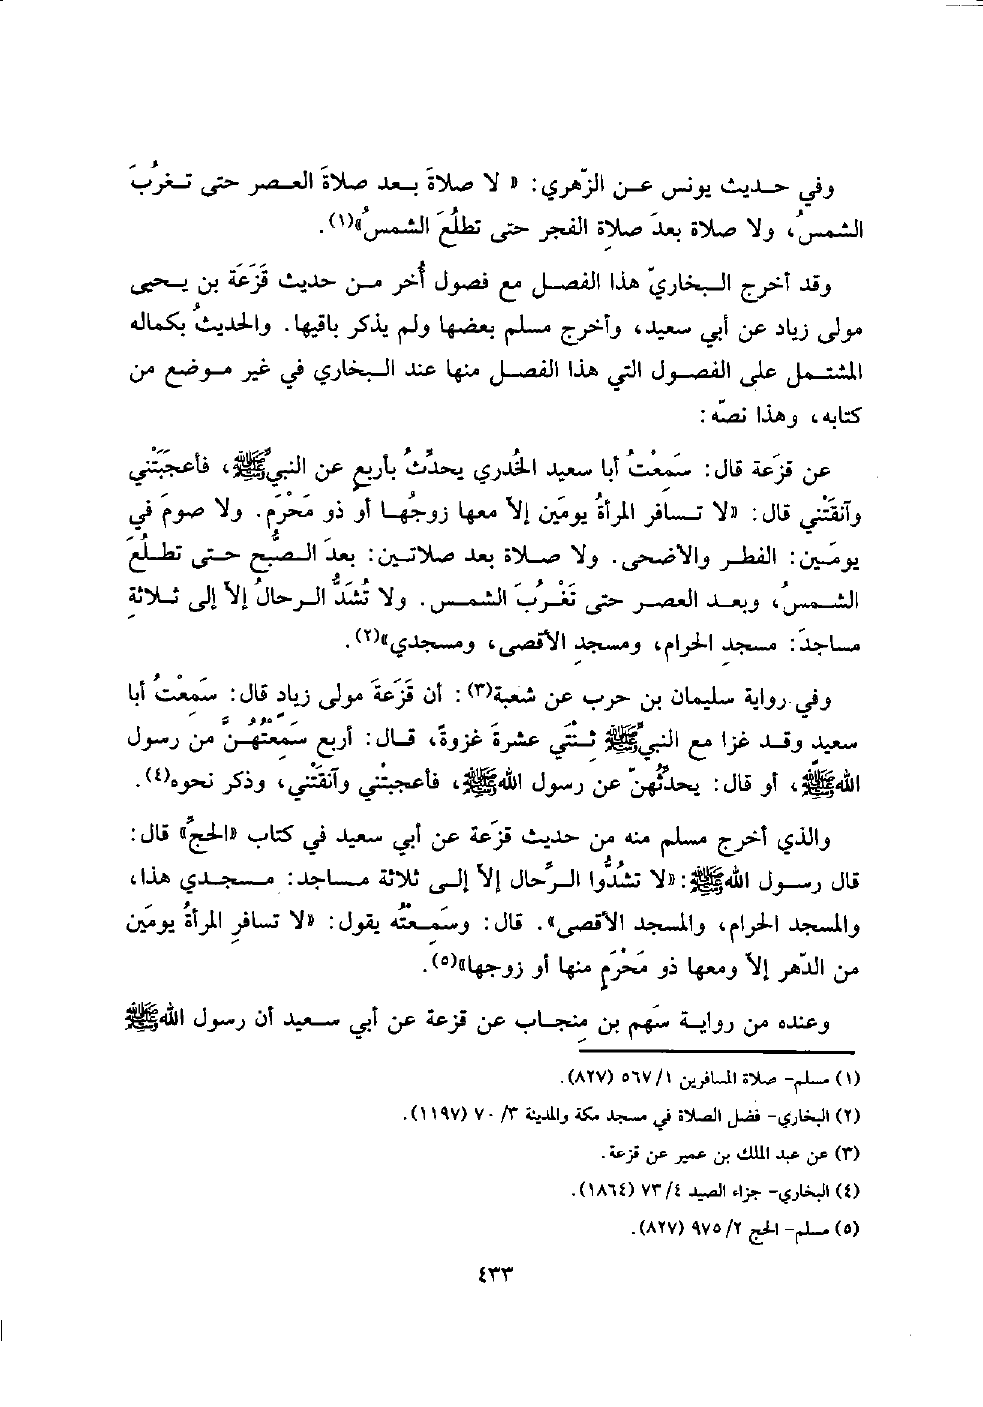 وفي حديث يونس عن الزّهري: «لا صلاةَ بعد صلاةَ العصر حتى تغرُبَ
الشمسُ، ولا صلاة بعدَ صلاةِ الفجر حتى تطلُعَ الشمسُ»(١).
وقد أخرج البخاريّ هذا الفصل مع فصول أُخر من حديث قَزَعَة بن يحيى
مولى زياد عن أبي سعيد، وأخرج مسلم بعضها ولم يذكر باقيها. والحديثُ بكماله
المشتمل على الفصول التي هذا الفصل منها عند البخاري في غير موضع من
كتابه، وهذا نصّه:
عن قزعة قال: سَمِعْتُ أبا سعيد الخُدري يحدّثُ بأربعٍ عن النبيّ ﷺ، فأعجَبَتْني
وآنقَتْني قال: «لا تسافر المرأةُ يومَين إلاّ معها زوجُها أو ذو مَحْرَم. ولا صومَ في
يومَين: الفطر والأضحى. ولا صلاة بعد صلاتين: بعدَ الصُّبح حتى تطلُعَ
الشمسُ، وبعد العصر حتى تَغْرُبَ الشمس. ولا تُشَدُّ الرحالُ إلاّ إلى ثلاثةِ
مساجدَ: مسجدِ الحرام، ومسجدِ الأقصى، ومسجدي»(٢).
وفي رواية سليمان بن حرب عن شعبة(٣): أن قَزَعَةَ مولى زياد قال: سَمِعْتُ أبا
سعيد وقد غزا مع النبيّ ﷺ ثِنْتَي عشرةَ غزوةً، قال: أربع سَمِعْتُهُنَّ من رسول
الله ﷺ، أو قال: يحدّثُهنّ عن رسول الله ﷺ، فأعجبتْني وآنقَتْني، وذكر نحوه(٤).
والذي أخرج مسلم منه من حديث قزَعة عن أبي سعيد في كتاب «الحجّ» قال:
قال رسول الله ﷺ: «لا تشُدُّوا الرِّحال إلاّ إلى ثلاثة مساجد: مسجدي هذا،
والمسجد الحرام، والمسجد الأقصى». قال: وسَمِعتُه يقول: «لا تسافرِ المرأةُ يومَين
من الدّهر إلاّ ومعها ذو مَحْرَمٍ منها أو زوجها»(٥).
وعنده من رواية سَهم بن مِنجاب عن قزعة عن أبي سعيد أن رسول الله ﷺ
(١) مسلم- صلاة المسافرين ١/ ٥٦٧ (٨٢٧).
(٢) البخاري- فضل الصلاة في مسجد مكة والمدينة ٣/ ٧٠ (١١٩٧).
(٣) عن عبد الملك بن عمير عن قزعة.
(٤) البخاري- جزاء الصيد ٤/ ٧٣ (١٨٦٤).
(٥) مسلم- الحج ٢/ ٩٧٥ (٨٢٧).
٤٣٣